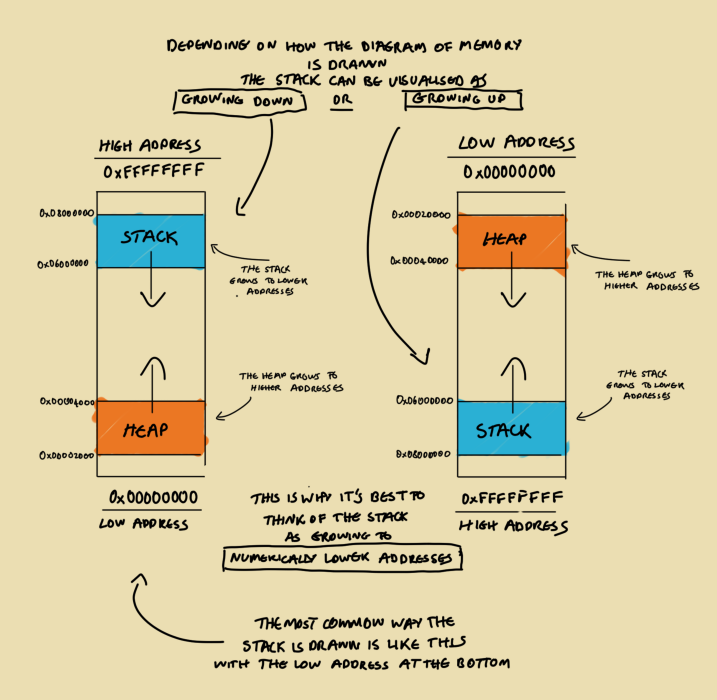 DEPENDING ON HOW THE DIAGRAM OF MEMORY
IS DRAWN
THE STACK CAN BE VISUALISED AS
GROWING DOWN OR GROWING UP
HIGH ADDRESS
0xFFFFFFFF
0x08000000
STACK
0x06000000
THE STACK
GROWS TO LOWER
ADDRESSES
THE HEAP GROWS TO
HIGHER ADDRESSES
0x00004000
HEAP
0x00002000
0x00000000
LOW ADDRESS
LOW ADDRESS
0x00000000
0x00020000
HEAP
0x00040000
THE HEAP GROWS TO
HIGHER ADDRESSES
THE STACK
GROWS TO LOWER
ADDRESSES
0x06000000
STACK
0x08000000
0xFFFFFFFF
HIGH ADDRESS
THIS IS WHY IT'S BEST TO
THINK OF THE STACK
AS GROWING TO
NUMERICALLY LOWER ADDRESSES
THE MOST COMMON WAY THE
STACK IS DRAWN IS LIKE THIS
WITH THE LOW ADDRESS AT THE BOTTOM